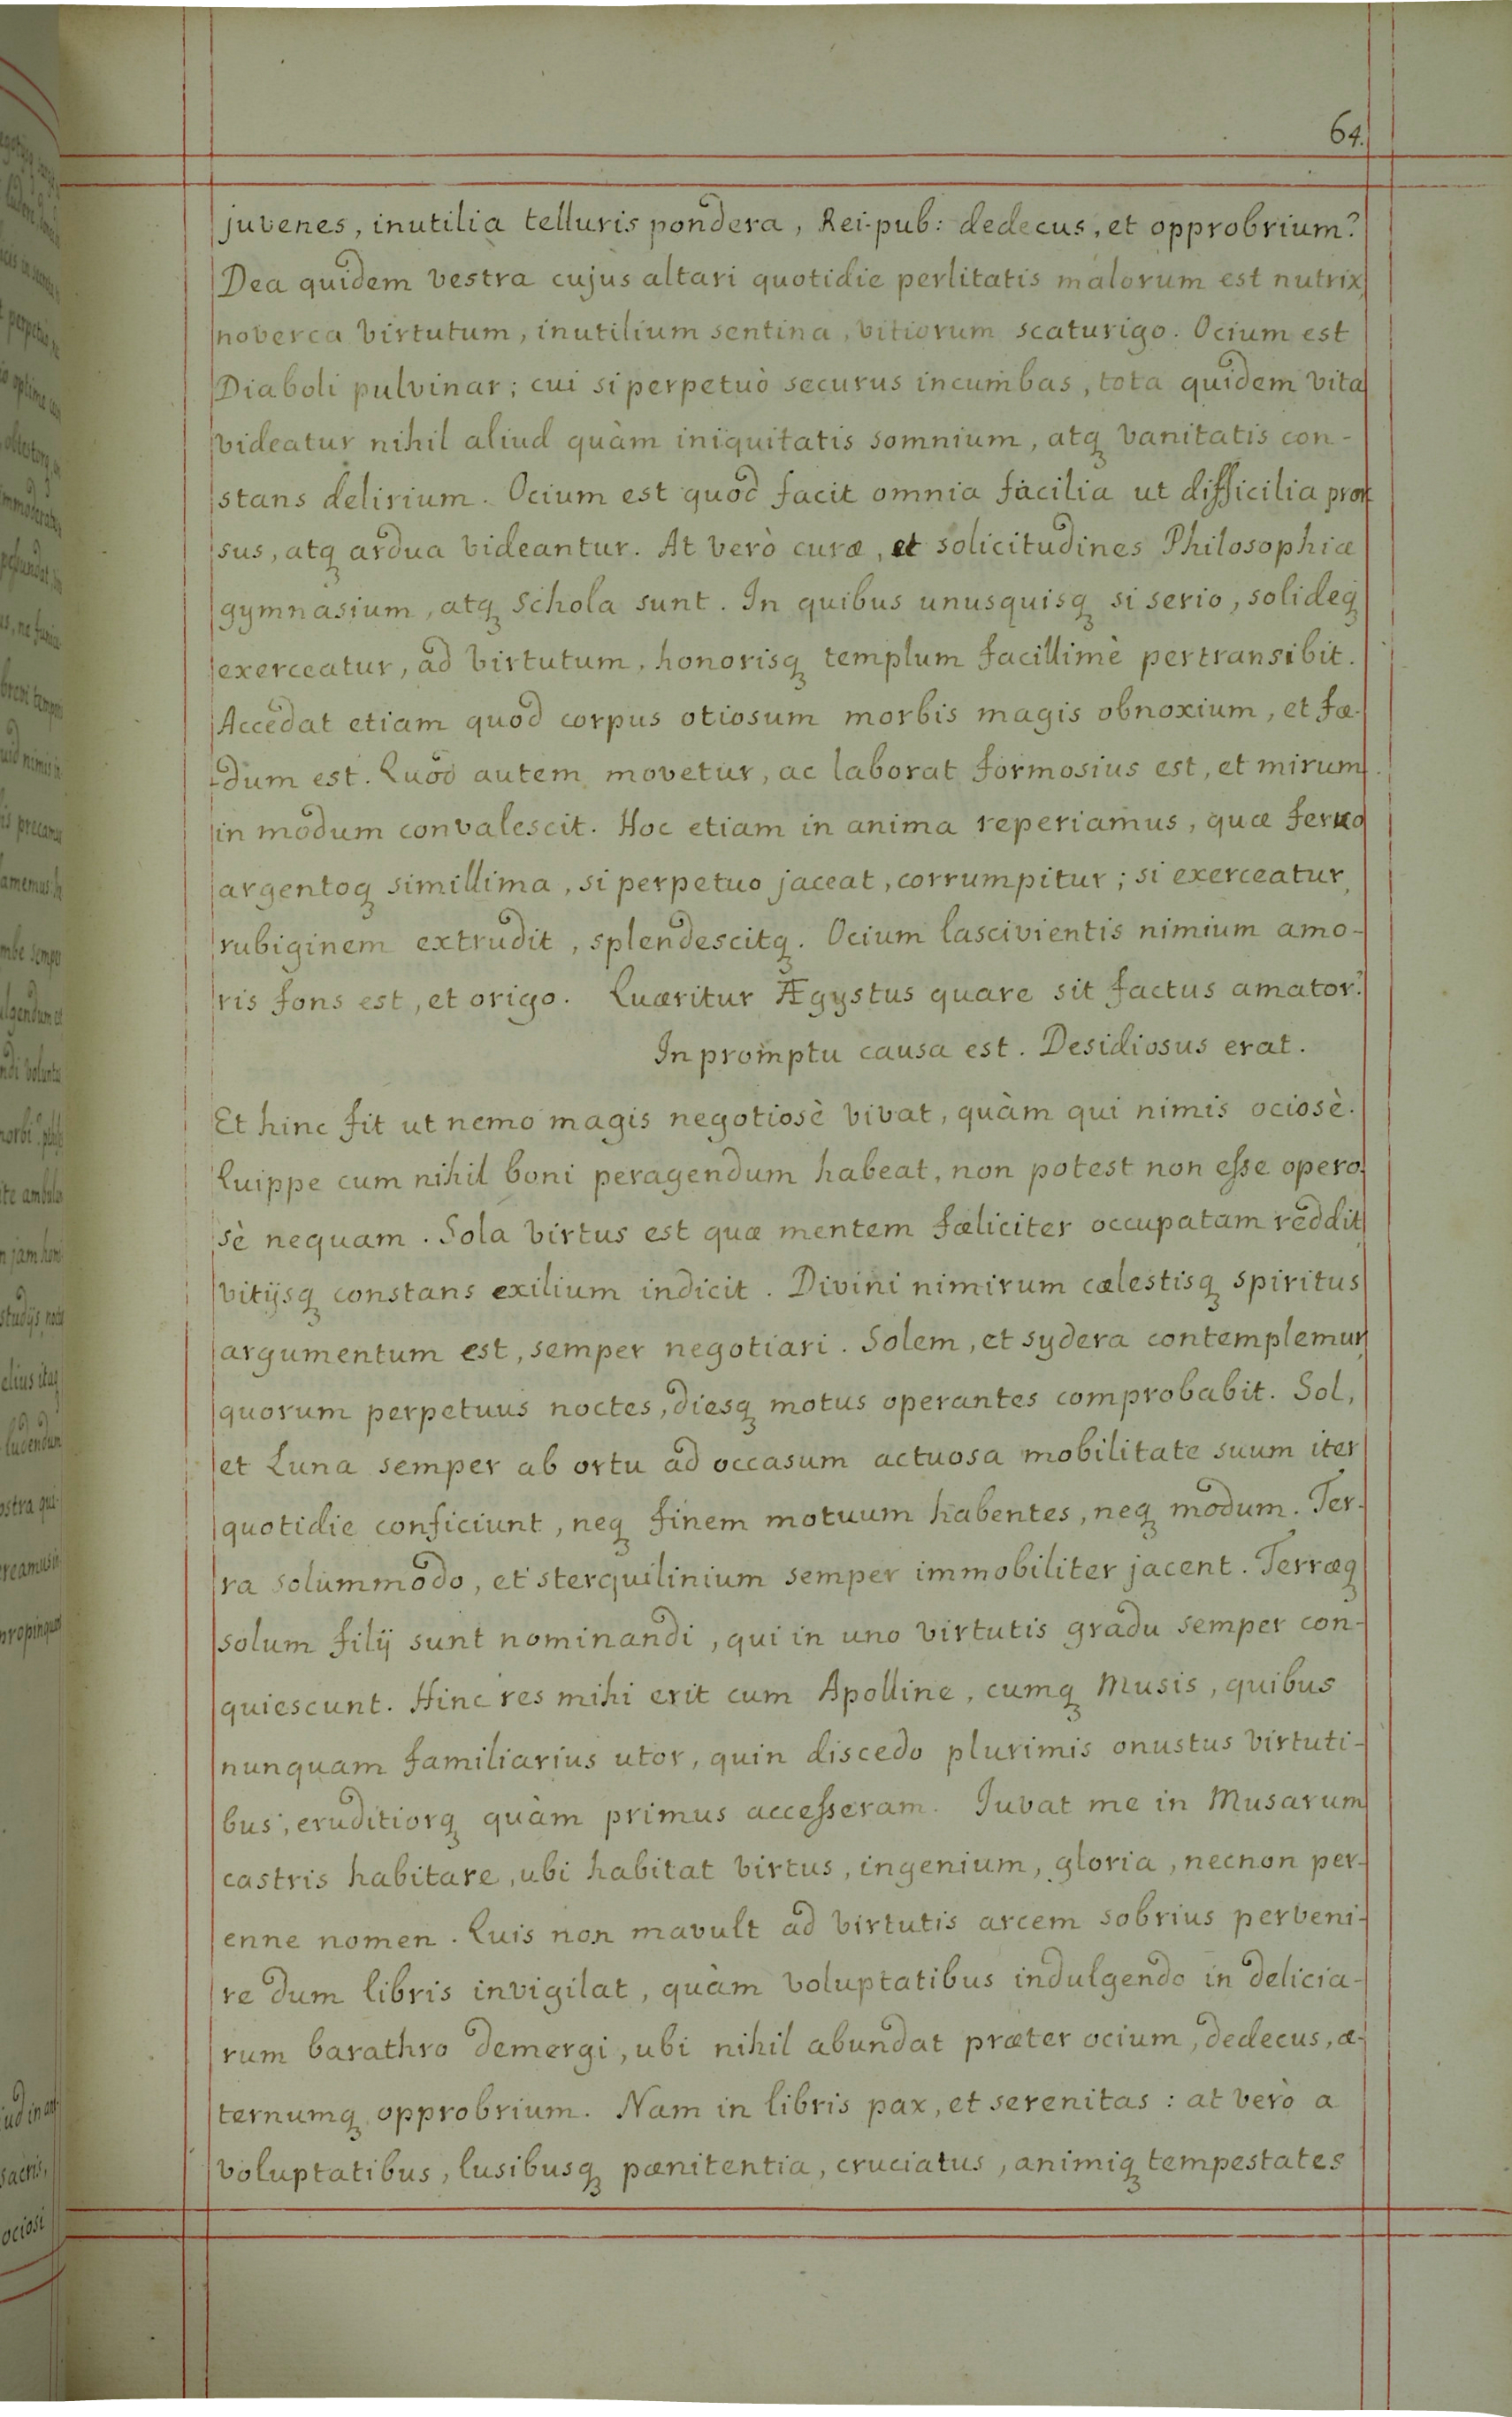 64.
juvenes, inutilia telluris pondera, Rei-pub: dedecus, et opprobrium?
Dea quidem vestra cujus altari quotidie perlitatis malorum est nutrix,
noverca virtutum, inutilium sentina, vitiorum scaturigo. Ocium est
Diaboli pulvinar; cui si perpetuò securus incumbas, tota quidem vita
videatur nihil aliud quàm iniquitatis somnium, atqꝫ vanitatis con-
stans delirium. Ocium est quod facit omnia facilia ut difficilia pror
sus, atqꝫ ardua videantur. At verò curæ, et solicitudines Philosophiæ
gymnasium, atqꝫ schola sunt. In quibus unusquisqꝫ si serio, solideqꝫ
exerceatur, ad virtutum, honorisqꝫ templum facillimè pertransibit.
Accedat etiam quod corpus otiosum morbis magis obnoxium, et fæ-
-dum est. Quod autem movetur, ac laborat formosius est, et mirum
in modum convalescit. Hoc etiam in anima reperiamus, quæ ferro
argentoqꝫ simillima, si perpetuo jaceat, corrumpitur; si exerceatur,
rubiginem extrudit, splendescitqꝫ. Ocium lascivientis nimium amo-
ris fons est, et origo. Quæritur Ægystus quare sit factus amator?
In promptu causa est. Desidiosus erat.
Et hinc fit ut nemo magis negotiosè vivat, quàm qui nimis ociosè.
Quippe cum nihil boni peragendum habeat, non potest non esse opero-
sè nequam. Sola virtus est quæ mentem fæliciter occupatam reddit,
vitijsqꝫ constans exilium indicit. Divini nimirum cælestisqꝫ spiritus
argumentum est, semper negotiari. Solem, et sydera contemplemur,
quorum perpetuus noctes, diesqꝫ motus operantes comprobabit. Sol,
et Luna semper ab ortu ad occasum actuosa mobilitate suum iter
quotidie conficiunt, neqꝫ finem motuum habentes, neqꝫ modum. Ter-
ra solummodo, et sterquilinium semper immobiliter jacent. Terræqꝫ
solum filij sunt nominandi, qui in uno virtutis gradu semper con-
quiescunt. Hinc res mihi erit cum Apolline, cumqꝫ Musis, quibus
nunquam familiarius utor, quin discedo plurimis onustus virtuti-
bus, eruditiorqꝫ quàm primus accesseram. Juvat me in Musarum
castris habitare, ubi habitat virtus, ingenium, gloria, necnon per-
enne nomen. Quis non mavult ad virtutis arcem sobrius perveni-
re dum libris invigilat, quàm voluptatibus indulgendo in delicia-
rum barathro demergi, ubi nihil abundat præter ocium, dedecus, æ-
ternumqꝫ opprobrium. Nam in libris pax, et serenitas: at verò a
voluptatibus, lusibusqꝫ pænitentia, cruciatus, animiqꝫ tempestates